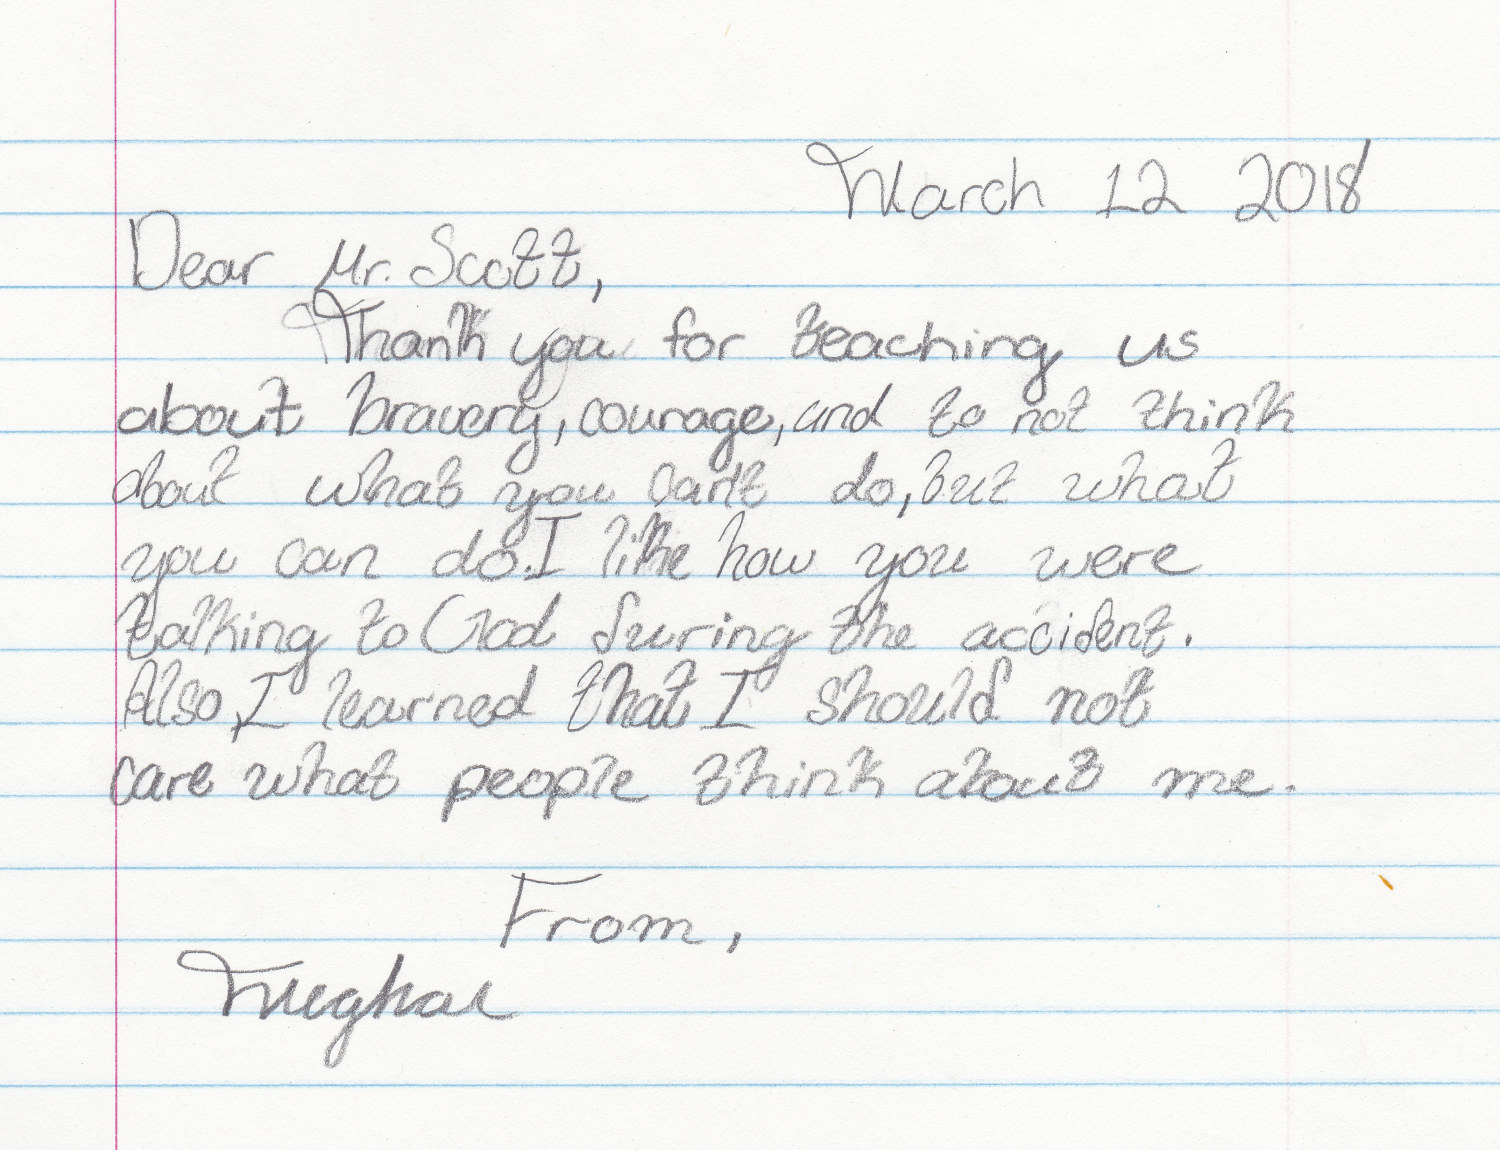 March 12 2018
Dear Mr. Scott,
Thank you for teaching us
about bravery, courage, and to not think
about what you can't do, but what
you can do. I like how you were
talking to God during the accident.
Also, I learned that I should not
care what people think about me.
From,